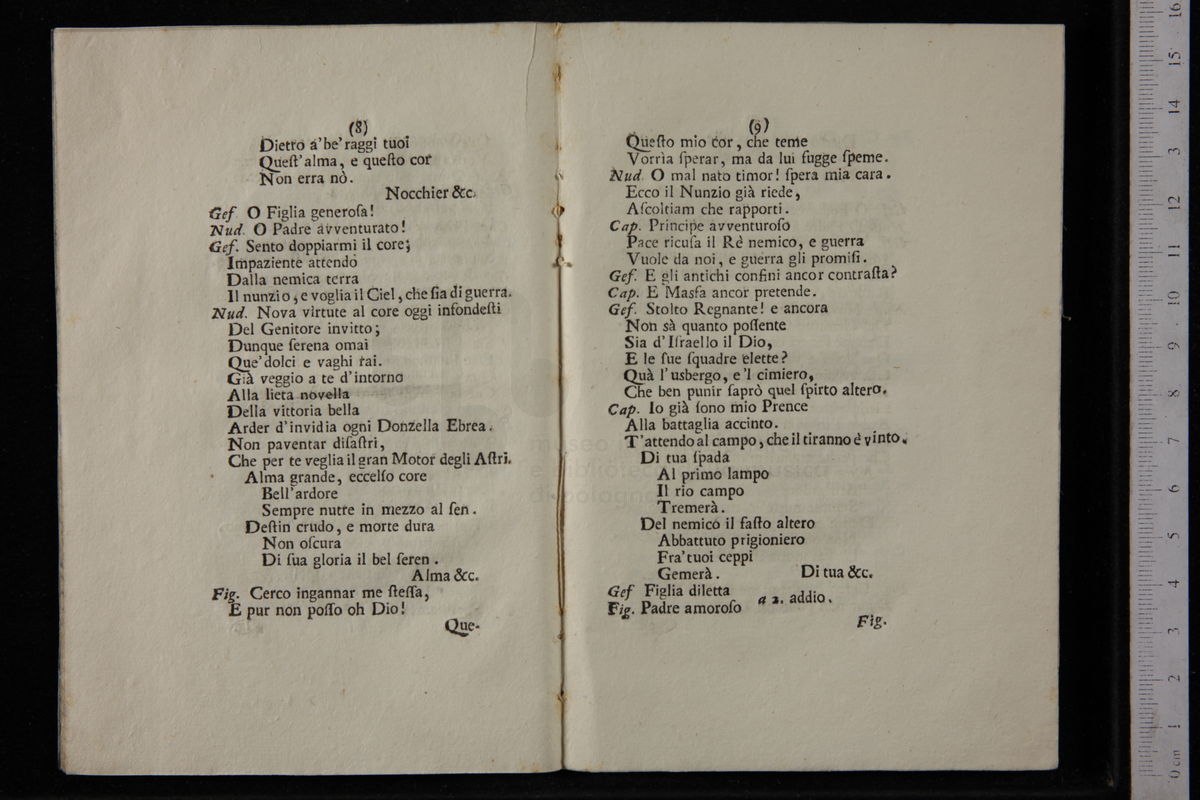 (8)
Dietro a' be' raggi tuoi
Queſt'alma, e queſto cor
Non erra nò.
Nocchier &c.
Gef. O Figlia generoſa!
Nud. O Padre avventurato!
Gef. Sento doppiarmi il core;
Impaziente attendo
Dalla nemica terra
Il nunzio, e voglia il Ciel, che ſia di guerra.
Nud. Nova virtute al core oggi infondeſti
Del Genitore invitto;
Dunque ſerena omai
Que' dolci e vaghi rai.
Già veggio a te d'intorno
Alla lieta novella
Della vittoria bella
Arder d'invidia ogni Donzella Ebrea.
Non paventar diſaſtri,
Che per te veglia il gran Motor degli Aſtri.
Alma grande, eccelſo core
Bell'ardore
Sempre nutre in mezzo al ſen.
Deſtin crudo, e morte dura
Non oſcura
Di ſua gloria il bel ſeren.
Alma &c.
Fig. Cerco ingannar me ſteſſa,
E pur non poſſo oh Dio!
Que-
(9)
Queſto mio cor, che teme
Vorrìa ſperar, ma da lui fugge ſpeme.
Nud. O mal nato timor! ſpera mia cara.
Ecco il Nunzio già riede,
Aſcoltiam che rapporti.
Cap. Principe avventuroſo
Pace ricuſa il Rè nemico, e guerra
Vuole da noi, e guerra gli promiſi.
Gef. E gli antichi confini ancor contraſta?
Cap. E Masfa ancor pretende.
Gef. Stolto Regnante! e ancora
Non sà quanto poſſente
Sia d'Iſraello il Dio,
E le ſue ſquadre elette?
Quà l'usbergo, e 'l cimiero,
Che ben punir ſaprò quel ſpirto altero.
Cap. Io già ſono mio Prence
Alla battaglia accinto.
T'attendo al campo, che il tiranno è vinto.
Di tua ſpada
Al primo lampo
Il rio campo
Tremerà.
Del nemico il faſto altero
Abbattuto prigioniero
Fra' tuoi ceppi
Gemerà. Di tua &c.
Gef Figlia diletta
Fig. Padre amoroſo a 2. addio.
Fig.
museo
e biblioteca della musica
di bologna
0 cm 1 2 3 4 5 6 7 8 9 10 11 12 3 14 15 16